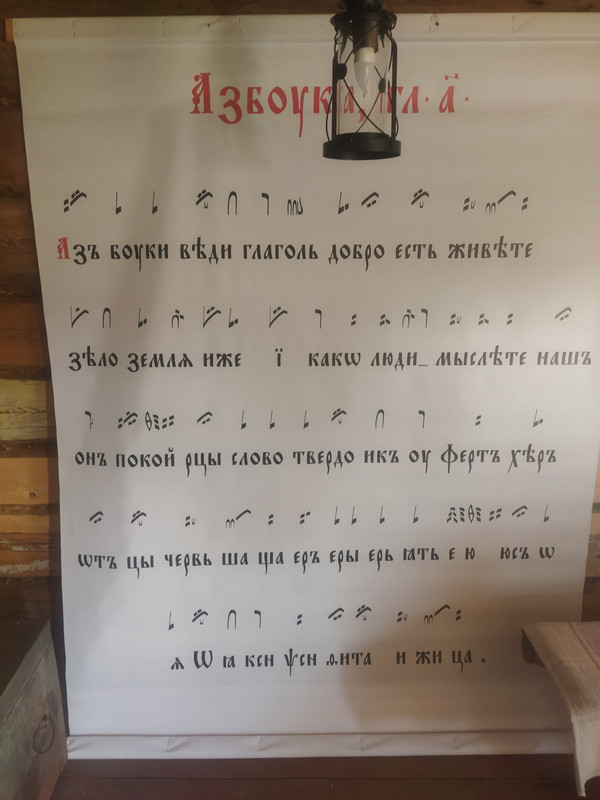 Азбоука, гл. а҃.
Азъ боуки вѣди глаголь добро есть живѣте
зѣло земля иже ї какѡ люди_ мыслѣте нашъ
онъ покой рцы слово твердо икъ оу фертъ хѣръ
ѿтъ цы червь ша ща еръ еры ерь ꙗть е ю юсъ ѡ
ѧ Ѡ ꙗ кси ѱси ѳита и жи ца .